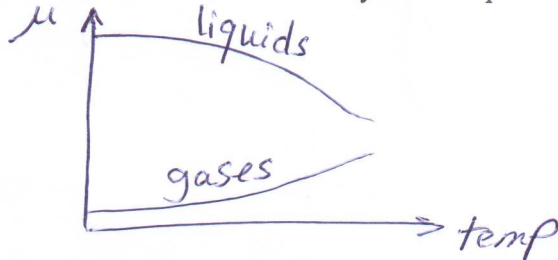 μ
liquids
gases
temp